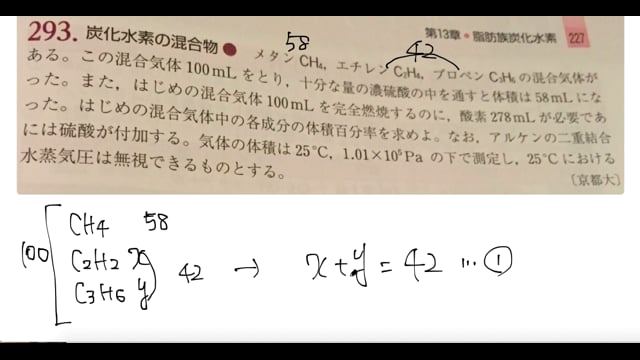 293. 炭化水素の混合物●
第13章●脂肪族炭化水素 227
58
42
メタン CH₄, エチレン C₂H₄, プロペン C₃H₆ の混合気体が
ある。この混合気体 100mL をとり, 十分な量の濃硫酸の中を通すと体積は 58mL にな
った。また, はじめの混合気体 100mL を完全燃焼するのに, 酸素 278mL が必要であ
った。はじめの混合気体中の各成分の体積百分率を求めよ。なお, アルケンの二重結合
には硫酸が付加する。気体の体積は 25℃, 1.01×10⁵Pa の下で測定し, 25℃における
水蒸気圧は無視できるものとする。
〔京都大〕
CH4 58
100 C2H2 x 42 → x+y=42 … ①
C3H6 y